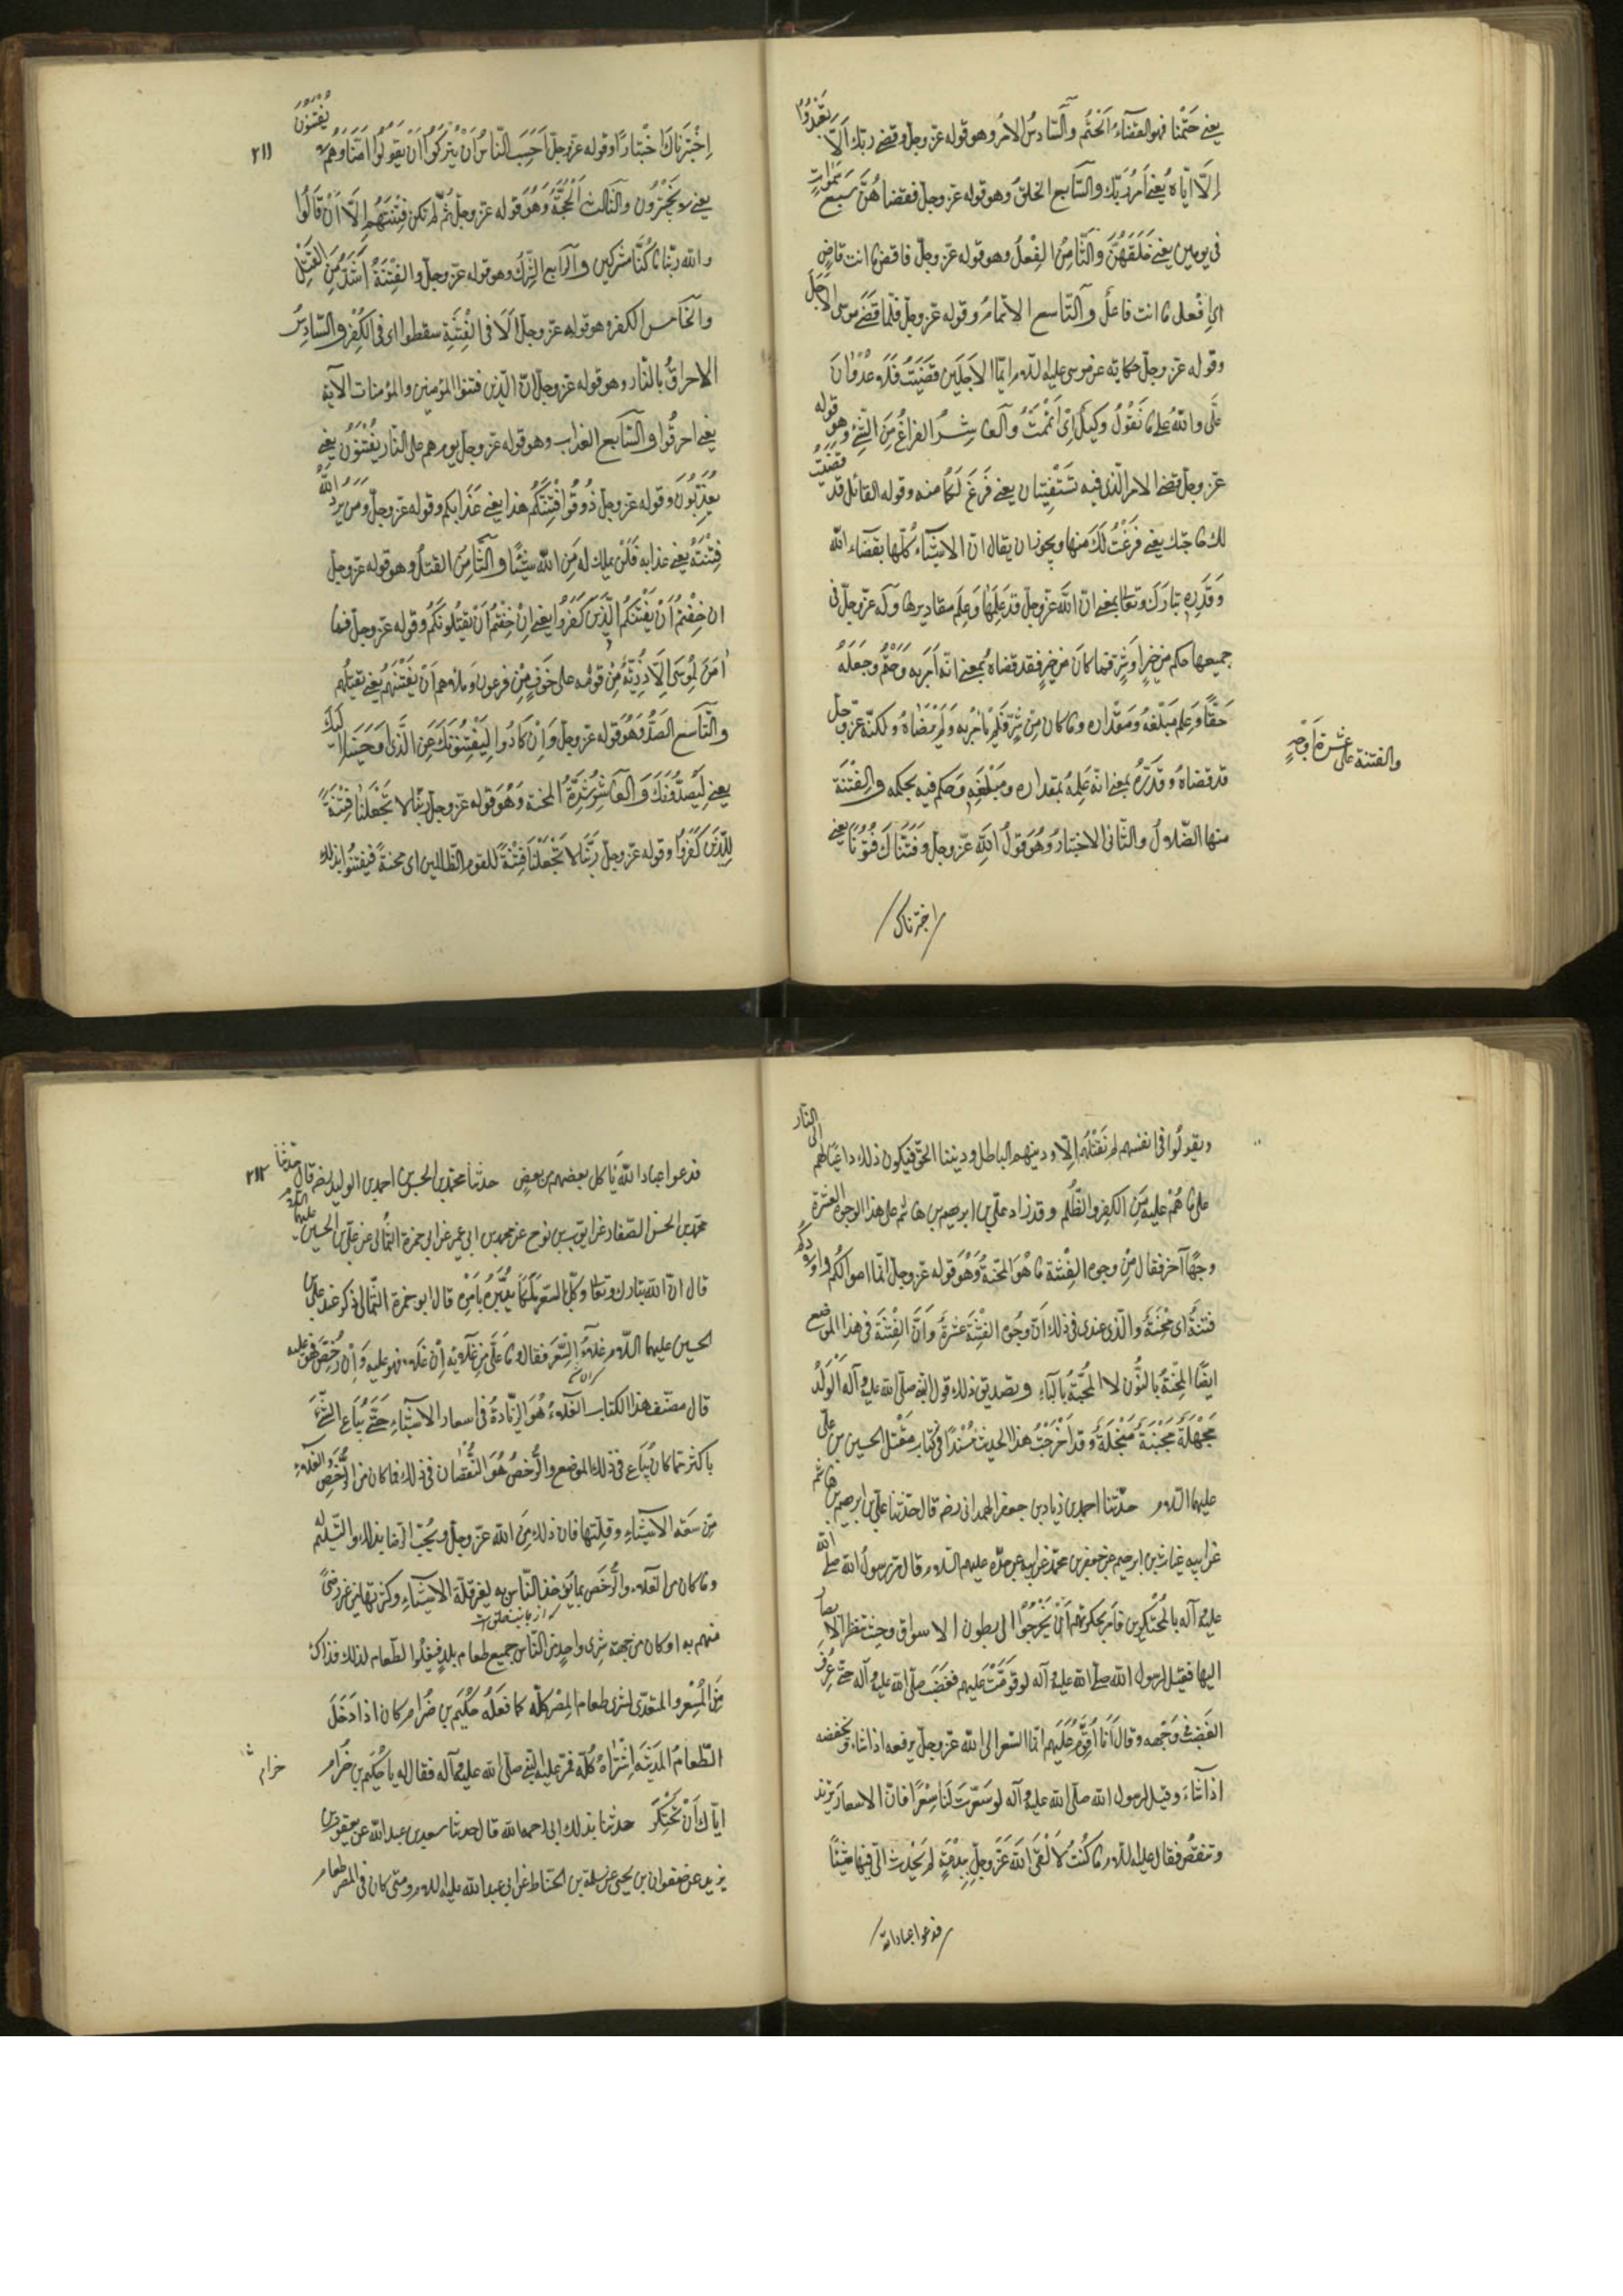 يعنى حَتْمنا فهو القضآءُ الحَتْم والسّادسُ الامرُ وهو قوله عزّ وجلّ وقضى ربّك اَلّا تَعْبُدُوا
اِلّا ايّاه يُعنى اَمَرَ رَبّك والسّابع الخلقُ وهو قوله عزّ وجلّ فقضاهُنَّ سَبع سَمٰوات
فى يومين يعنى خَلَقَهُنَّ وَالثّامِنُ الفِعْلُ وهو قوله عزّ وجلّ فاقض ما انت قاضٍ
اىِ افْعل ما انت فاعلٌ وَالتّاسع الاتمامُ وقوله عزّ وجلّ فلمّا قَضَى موسى الاَجَلَ
وقوله عزّ وجلّ حكاية عن موسى عليه السلام ايّما الاجَلَين قَضَيْتُ فَلَا عُدْوٰانَ
عَلَىَّ واللّٰهُ على ما نَقُوْلُ وَكيلٌ اى اَتْمَمْتُ وَالعاشِرُ الفراغُ مِنَ الشّئ وهو قوله
عزّ وجلّ قضى الامر الّذى فيه تَسْتَفْتِيٰان يعنى فَرَغَ لكما منه وقوله القائل قد قضيتُ
لك حاجتك يعنى فَرَغْتُ لَكَ منها ويجوز ان يقال انّ الاشيآء كُلّها بقضآء اللّه
وَقَدَرِهِ تبارَكَ وتعٰالى بمعنى انّ اللّهَ عزّ وجلّ قد عَلِمَهٰا وَعَلِمَ مقاديرها وله عزّ وجلّ فى
جميعها حكم مِن خيرٍ او شرٍّ فما كانَ من خيرٍ فقد قضاهُ بمعنى انّه اَمَرَ به وَحَتْمهُ وجَعَلَهُ
حَقًّا وَعَلِمَ مَبْلَغهُ وَمقداره وما كان مِن شَرٍّ فَلَم يأمُرْ به وَلَم يَرْضٰاهُ ولكنّه عزّ وجلّ
قد قضاهُ وقَدّرَهُ بمعنى انّه عَلِمَهُ بمقداره ومَبْلَغَهِ وَحكم فيه بحكمه وَالفِتْنَة
والفتنة على عشرة اَوْجُهٍ
منها الضّلالُ والثّانى الاختبارُ وَهُوَ قولُ اللّهِ عزّ وجلّ وَفَتَنّاكَ فُتُوْنًا يعنى
اختبرناك
٢١١
اِخْتَبَرْنَاكَ اخْتبارًا وقوله عزّ وجلّ اَحَسِبَ النّاسُ اَنْ يُتْرَكُوْا اَنْ يَقُولُوْا امَنّا وَهُمْ لا يُفْتَنُوْنَ
يعنى لا يُخْتَبَرُون والثّالث الحُجّةُ وَهُوَ قوله عزّ وجلّ ثُمَّ لم تكن فِتْنَتَهُم اِلّا اَنْ قَالُوا
واللّه ربّنا ما كُنّا مشركين والرّابع الشِّركُ وهو قوله عزّ وجلّ والفِتْنَةُ اَشَدُّ مِنَ القَتْلِ
والخامس الكفر وهو قوله عزّ وجلّ اَلَا فى الفِتْنَةِ سقطوا اى فى الكفر والسّادسُ
الاحراقُ بالنّار وهو قوله عزّ وجلّ انّ الّذين فتنوا المؤمنين والمؤمنات الآية
يعنى احرقُوا والسّابع العذاب وهو قوله عزّ وجلّ يوم هم على النّار يُفْتَنُوْن يعنى
يُعَذّبُوْنَ وقوله عزّ وجلّ ذُوقُوا فِتْنَتَكُم هذا يعنى عَذابكم وقوله عزّ وجلّ وَمَن يُرِدِ اللّٰهُ
فِتْنَتَهُ يعنى عذابه فَلَنْ تملك لَه مِنَ اللّه شيئًا والثّامِنُ القتلُ وهو قوله عزّ وجلّ
ان خِفْتُم اَنْ يَفْتِنَكُمُ الّذينَ كَفَرُوا يعنى اِنْ خِفْتُم اَنْ يَقتُلُوْنَكُم وقوله عزّ وجلّ فما
اٰمَنَ لِمُوسى اِلّا ذُرِّيّةٌ مِنْ قومِه على خَوفٍ مِنْ فرعون وملائهم اَنْ يَفْتِنَهُم يعنى يقتلهم
والتّاسع الصَدُّ وَهُوَ قوله عزّ وجلّ وَاِنْ كَادُوا لَيَفْتِنُوْنَكَ عَنِ الّذى اَوحَيْنَا اِلَيْكَ
يعنى لَيَصُدُّونَكَ وَالعاشِرُ شِدَّةُ المحنة وَهُوَ قوله عزّ وجلّ رَبّنَا لا تَجْعَلنٰا فِتْنَةً
للّذينَ كَفَرُوا وقوله عزّ وجلّ رَبّنَا لا تَجْعَلْنَا فِتْنَةً للقوم الظّالمين اى محنةً فيفتنُوا بذلك
ويقولُوا فى انفسهم لم نَقْتُلْهُم اِلّا ودينهم الباطل وديننا الحَقّ فيكون ذلك داعيًا لهم الى النّار
على ما هُمْ عليه مِنَ الكفر والظُّلم وقد زاد علىّ بن ابرهيم بن هاشم على هذا الوجوه العشرة
وجهًا آخر فقال مِنْ وجوه الفِتْنَة ما هُوَ المحبّةُ وَهُوَ قوله عزّ وجلّ انّما اموالكُم واولادكُم
فتنةٌ اى مَحَبّةٌ وَالّذى عندى فى ذلك اَنّ وجُوهَ الفِتْنَة عشرَةٌ وَاَنّ الفِتْنَة فى هذا الموضع
ايضًا المِحْنَةُ بالنُّون لا المَحَبَّةُ بالبَآءِ وتصديق ذلك قول النّبى صلّى اللّه عليه وآله الْوَلَدُ
مَجْهَلَةٌ مَجْبَنَةٌ مَبْخَلَةٌ وقد اَخرَجْتُ هذا الحديث مُسْندًا فى كتاب مَقْتَل الحسين بن على
عليهما السّلام حدّثنا احمد بن زياد بن جعفر الهمدانى رضه قال حدّثنا علىّ بن ابرهيم بن هاشم
عن ابيه عن غياث بن ابرهيم عن جعفر بن محمّد عن ابيه عن جدّه عليهم السّلام قال مرّ رسولُ اللّه صلّى اللّه
عليه وآله بالمُحْتَكِرين فاَمر بحكرتهم اَنْ يُخْرَجُوْا الى بطون الاسواق وحيث تنظر الابصار
اليها فقيل لرسول اللّه صلّى اللّه عليه وآله لو قوّمْتَ عليهم فغضب صلّى اللّه عليه وآله حتّى عُرِفَ
الغَضَبُ فى وَجْهه وقال اَنَا اُقَوِّمُ عَلَيهِم انّما السّعر الى اللّه عزّ وجلّ يرفعه اذا شاء ويَخفضه
اذا شآءَ وقيل لرسول اللّه صلّى اللّه عليه وآله لو سَعّرتَ لنا سِعْرًا فانّ الاسعار تزيد
وتنقصُ فقال عليه السلام ما كُنْتُ لَاَلْقَى اللّهَ عَزّ وجلّ بِبِدْعَةٍ لم يَحْدُث الىّ فيها شَيْئًا
فدعوا عباد اللّه
٢١٢
فدعوا عباد اللّه يَاكل بعضهم من بعضٍ حدثنا محمّد بن الحسن بن احمد بن الوليد رضه قال حدّثنا
محمّد بن الحسن الصّفار عن ايّوب بن نوح عن محمد بن ابى عمير عن ابى حمزة الثُّمالى عن علىّ بن الحسين عليهما السّلام
قال انّ اللّه تبارك وتعالى وكّل بالسّعر مَلَكًا يُدَبِّرُهُ بِاَمْرِه قال ابو حمزة الثّمالى ذكر عند علىّ بن
الحسين عليهما السّلام غَلاءُ السِّعَر فقال وما عَلَىَّ مِن غَلآئِه اِنْ غَلا فهو عليه وَاِنْ رَخُصَ فهو عليه
قال مصنّف هذا الكتاب الغلاءُ هُوَ الزّيادةُ فى اسعار الاشيآءِ حَتّى يُبَاع الشّئُ
باكثر ممّا كانَ يُبَاع فى ذلك الموضع والرُّخصُ هُوَ النُّقْصٰان فى ذلك فما كان من الرُّخْصِ والغلاءِ
مِن سَعَة الاشيآءِ وقلّتها فان ذلك مِنَ اللّه عزّ وجلّ ويُجِبُ الرّضا بذلك والتّسليم له
وما كان من الغلاء والرُّخص بما يؤخذ النّاس به لغير قلّة الاشيآء وكثرتها من غير رِضًى
منهم به او كان من جهة شِرى واحدٍ من النّاس جميع طعام بلدٍ فيغلُوا الطّعام لذلك فذاك
مِنَ المُسْعِر والمتعدّى بشرى طعام المِصْر كلّه كما فَعَلَهُ حَكيمُ بن حُزام كان اذا دَخَلَ
الطّعامُ المَدِينَة اشْتَراهُ كُلّه فمرّ عليه النّبى صلّى اللّه عليه وآله فقال له يا حَكيم بن حزام
حزام
ايّاك اَنْ تَحْتَكِرَ حدثنا بذلك ابى رحمه اللّه قال حدثنا سعد بن عبد اللّه عن يعقوب بن
يزيد عن صفوان بن يحيى عن سلمة بن الحنّاط عن ابى عبد اللّه عليه السلام ومتى كان فى المصر طعام